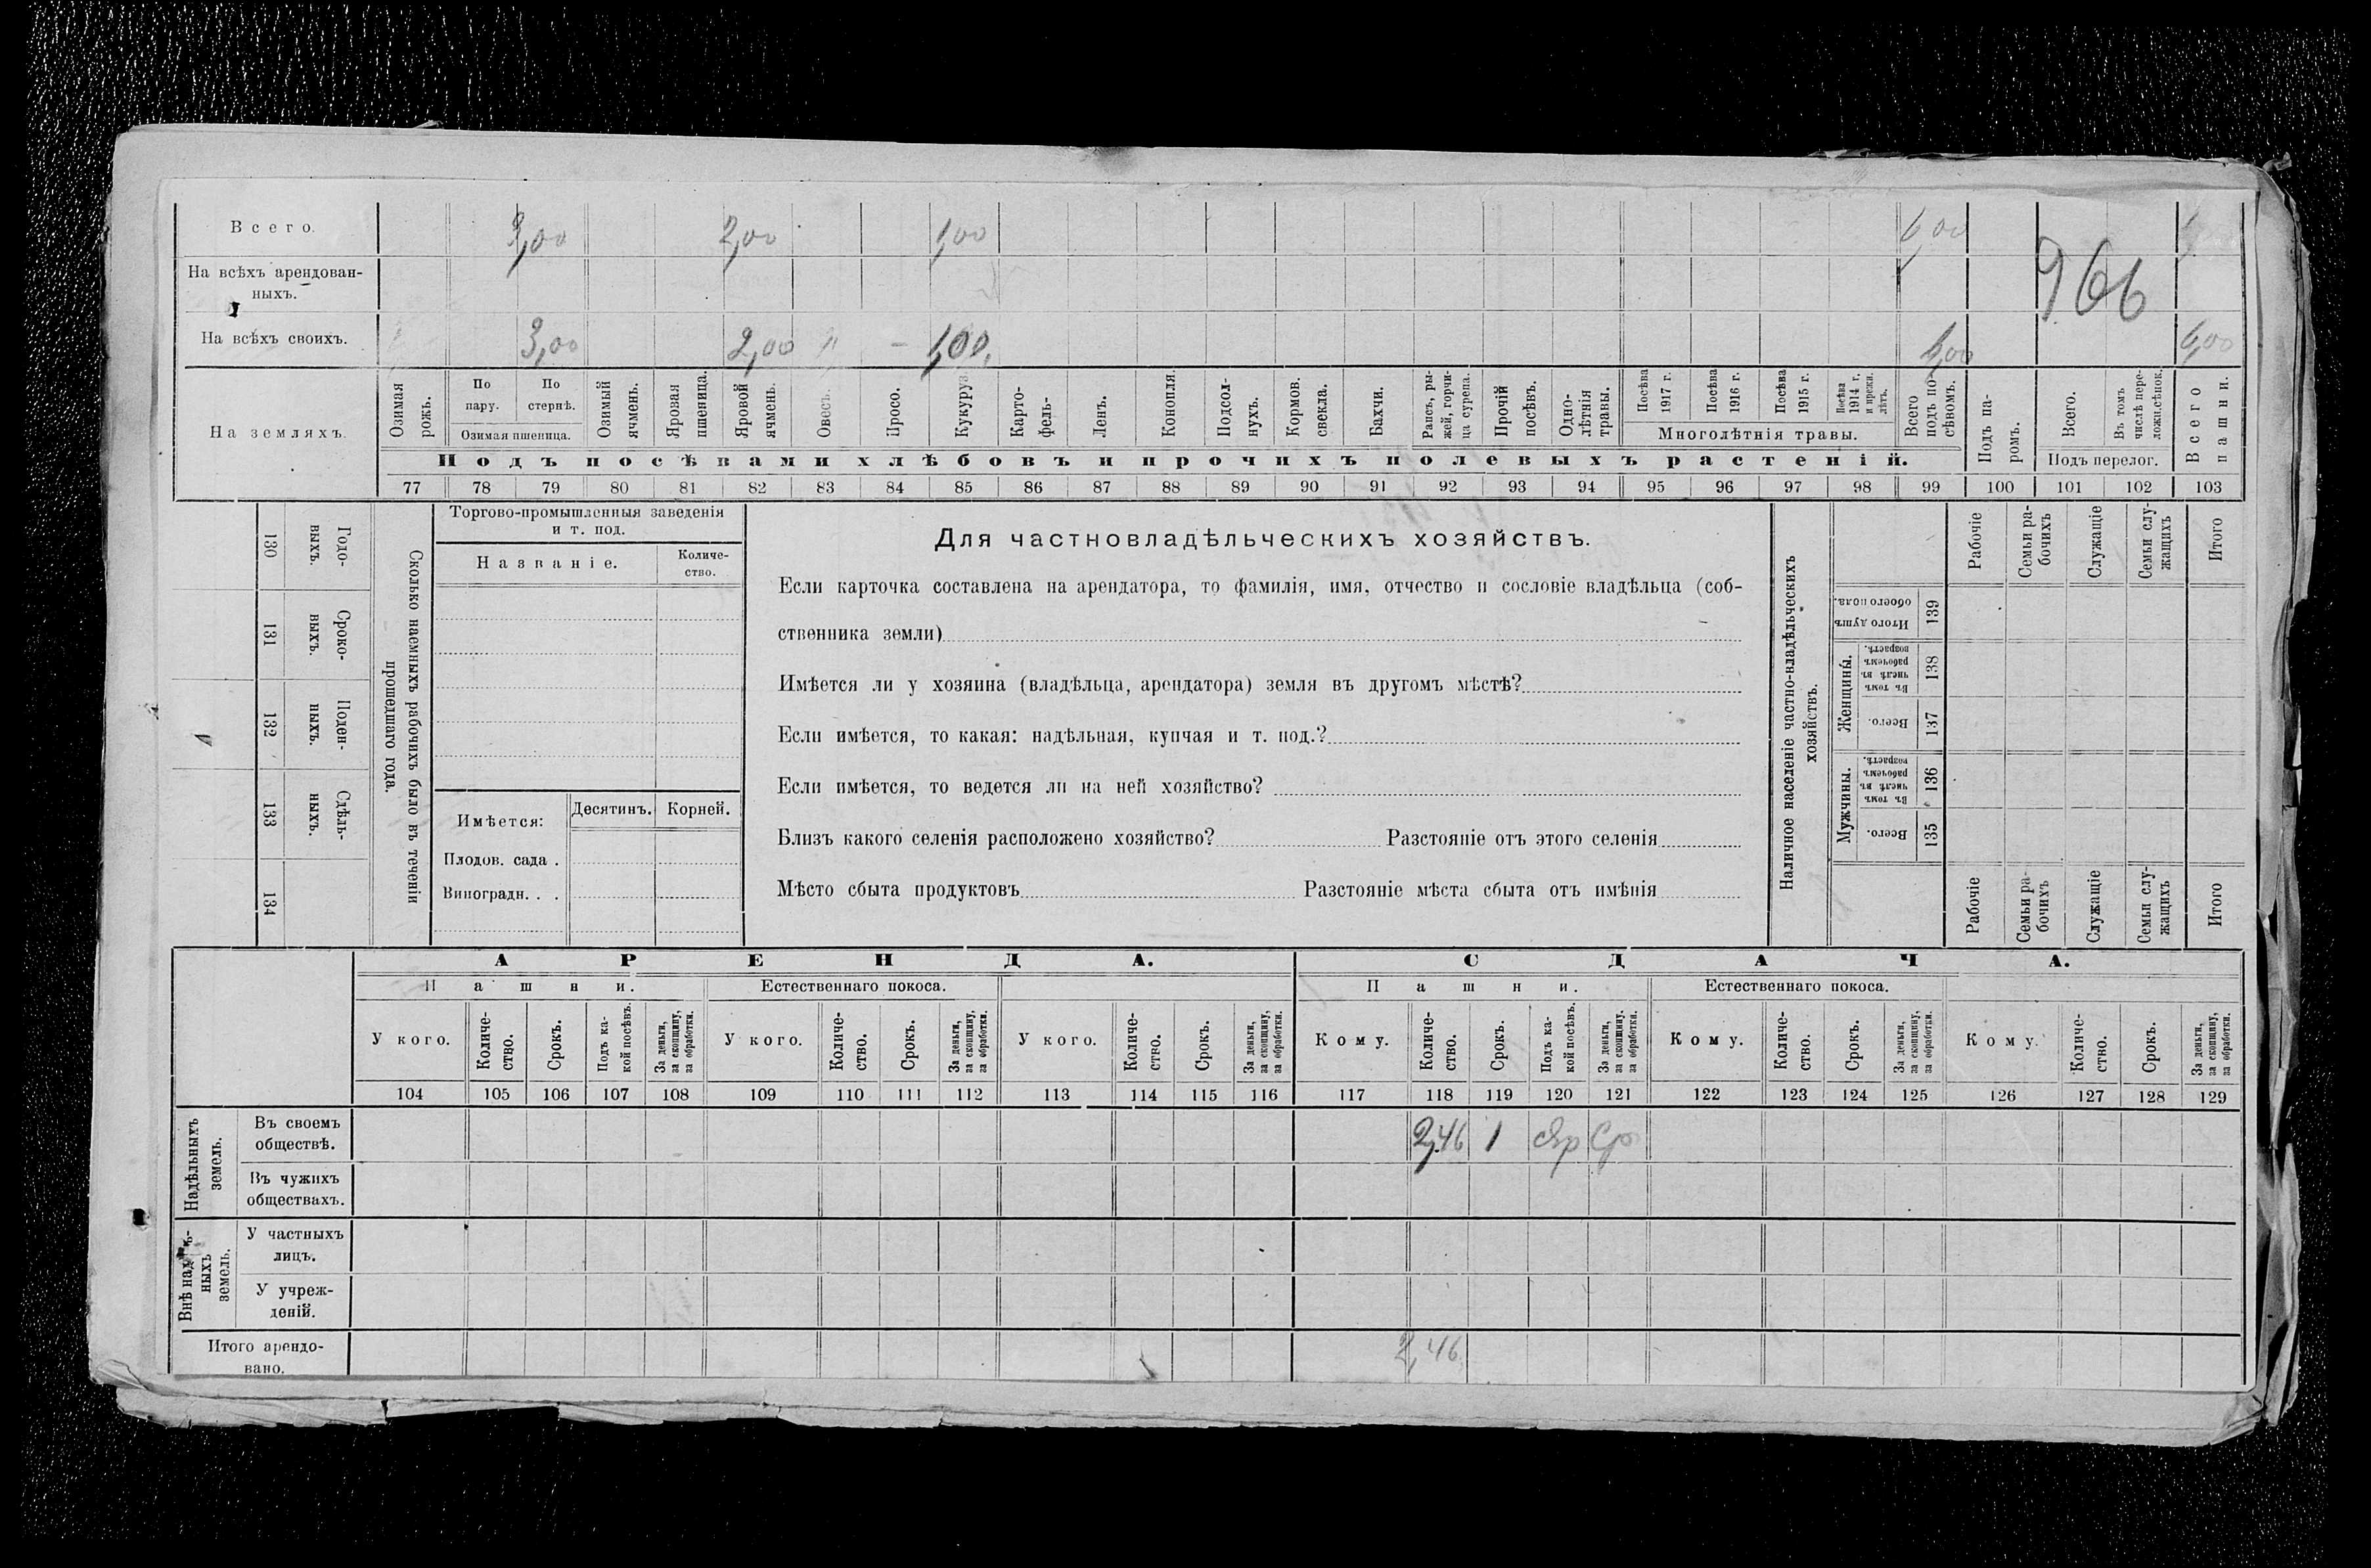 Всего. 3,00 2,00 1,00 6,00
На всѣхъ арендован-
ныхъ.
966
На всѣхъ своихъ. 3,00 2,00 1,00 6,00 6,00
На земляхъ.
Озимая рожь.
По пару.
По стернѣ.
Озимая пшеница.
Озимый ячмень.
Яровая пшеница.
Яровой ячмень.
Овесъ.
Просо.
Кукуруза
Карто-
фель-
Ленъ.
Конопля.
Подсол-
нухъ.
Кормов.
свекла.
Бахчи.
Рапсъ, ры-
жей, горчи-
ца сурепа.
Прочій
посѣвъ.
Одно-
лѣтнія
травы.
Посѣва
1917 г.
Посѣва
1916 г.
Посѣва
1915 г.
Посѣва
1914 г.
и прежн.
лѣтъ.
Многолѣтнія травы.
Всего
подъ по-
сѣвомъ.
Подъ па-
ромъ.
Всего.
Въ томъ
числѣ пере-
ложн.сѣнок.
Подъ перелог.
Всего
пашни.
Подъ посѣвами хлѣбовъ и прочихъ полевыхъ растеній.
77 78 79 80 81 82 83 84 85 86 87 88 89 90 91 92 93 94 95 96 97 98 99 100 101 102 103
130 Годо-
ныхъ.
131 Сроко-
ныхъ.
132 Поден-
ныхъ.
133 Сдѣль-
ныхъ.
134
Сколько наемныхъ рабочихъ было въ теченіи
прошедшаго года.
Торгово-промышленныя заведенія
и т. под.
Названіе.
Количе-
ство.
Имѣется: Десятинъ. Корней.
Плодов. сада .
Виноградн. . .
Для частновладѣльческихъ хозяйствъ.
Если карточка составлена на арендатора, то фамилія, имя, отчество и сословіе владѣльца (соб-
ственника земли)
Имѣется ли у хозяина (владѣльца, арендатора) земля въ другомъ мѣстѣ?
Если имѣется, то какая: надѣльная, купчая и т. под.?
Если имѣется, то ведется ли на ней хозяйство?
Близъ какого селенія расположено хозяйство? Разстояніе отъ этого селенія
Мѣсто сбыта продуктовъ Разстояніе мѣста сбыта отъ имѣнія
Наличное населеніе частно-владѣльческихъ
хозяйствъ.
Рабочіе
Семьи ра-
бочихъ
Служащіе
Семьи слу-
жащихъ
Итого
Итого душъ
обоего пола. 139
Женщины.
Въ томъ
числѣ въ
рабочемъ
возрастѣ. 138
Всего. 137
Мужчины.
Въ томъ
числѣ въ
рабочемъ
возрастѣ. 136
Всего. 135
Рабочіе
Семьи ра-
бочихъ
Служащіе
Семьи слу-
жащихъ
Итого
АРЕНДА. СДАЧА.
Пашни. Естественнаго покоса. Пашни. Естественнаго покоса.
У кого.
Количе-
ство.
Срокъ.
Подъ ка-
кой посѣвъ.
За деньги,
за скопщину,
за обработки.
У кого.
Количе-
ство.
Срокъ.
За деньги,
за скопщину,
за обработки.
У кого.
Количе-
ство.
Срокъ.
За деньги,
за скопщину,
за обработки.
Кому.
Количе-
ство.
Срокъ.
Подъ ка-
кой посѣвъ.
За деньги,
за скопщину.
за обработки.
Кому.
Количе-
ство.
Срокъ.
За деньги,
за скопщину,
за обработки.
Кому.
Количе-
ство.
Срокъ.
За деньги,
за скопщину,
за обработки.
104 105 106 107 108 109 110 111 112 113 114 115 116 117 118 119 120 121 122 123 124 125 126 127 128 129
Надѣльныхъ
земель.
Въ своемъ
обществѣ. 2,46 1
Въ чужихъ
обществахъ.
Внѣ надѣль-
ныхъ
земель.
У частныхъ
лицъ.
У учреж-
деній.
Итого арендо-
вано. 2,46